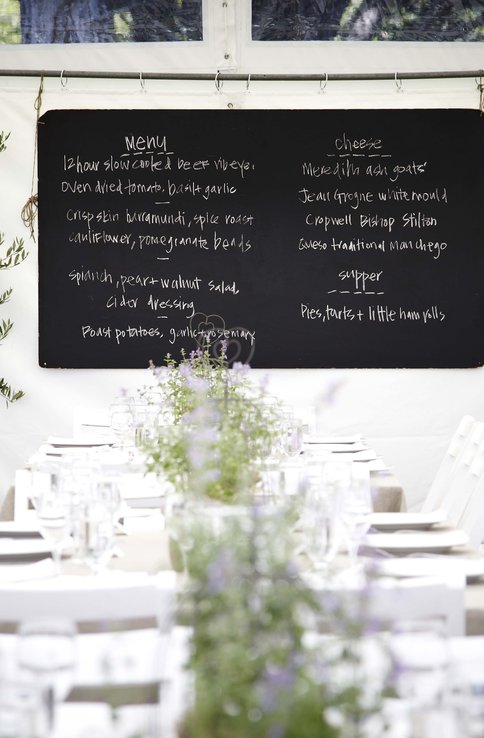 Menu
12 hour slow cooked beef ribeye.
Oven dried tomato, basil + garlic
Crisp skin barramundi, spice roast
cauliflower, pomegranate beads
spianch, pear + walnut salad,
cider dressing
Roast potatoes, garlic + rosemary
cheese
Meredith ash goats'
Jean Grogne white mould
Cropwell Bishop Stilton
Queso traditional manchego
supper
Pies, tarts + little ham rolls